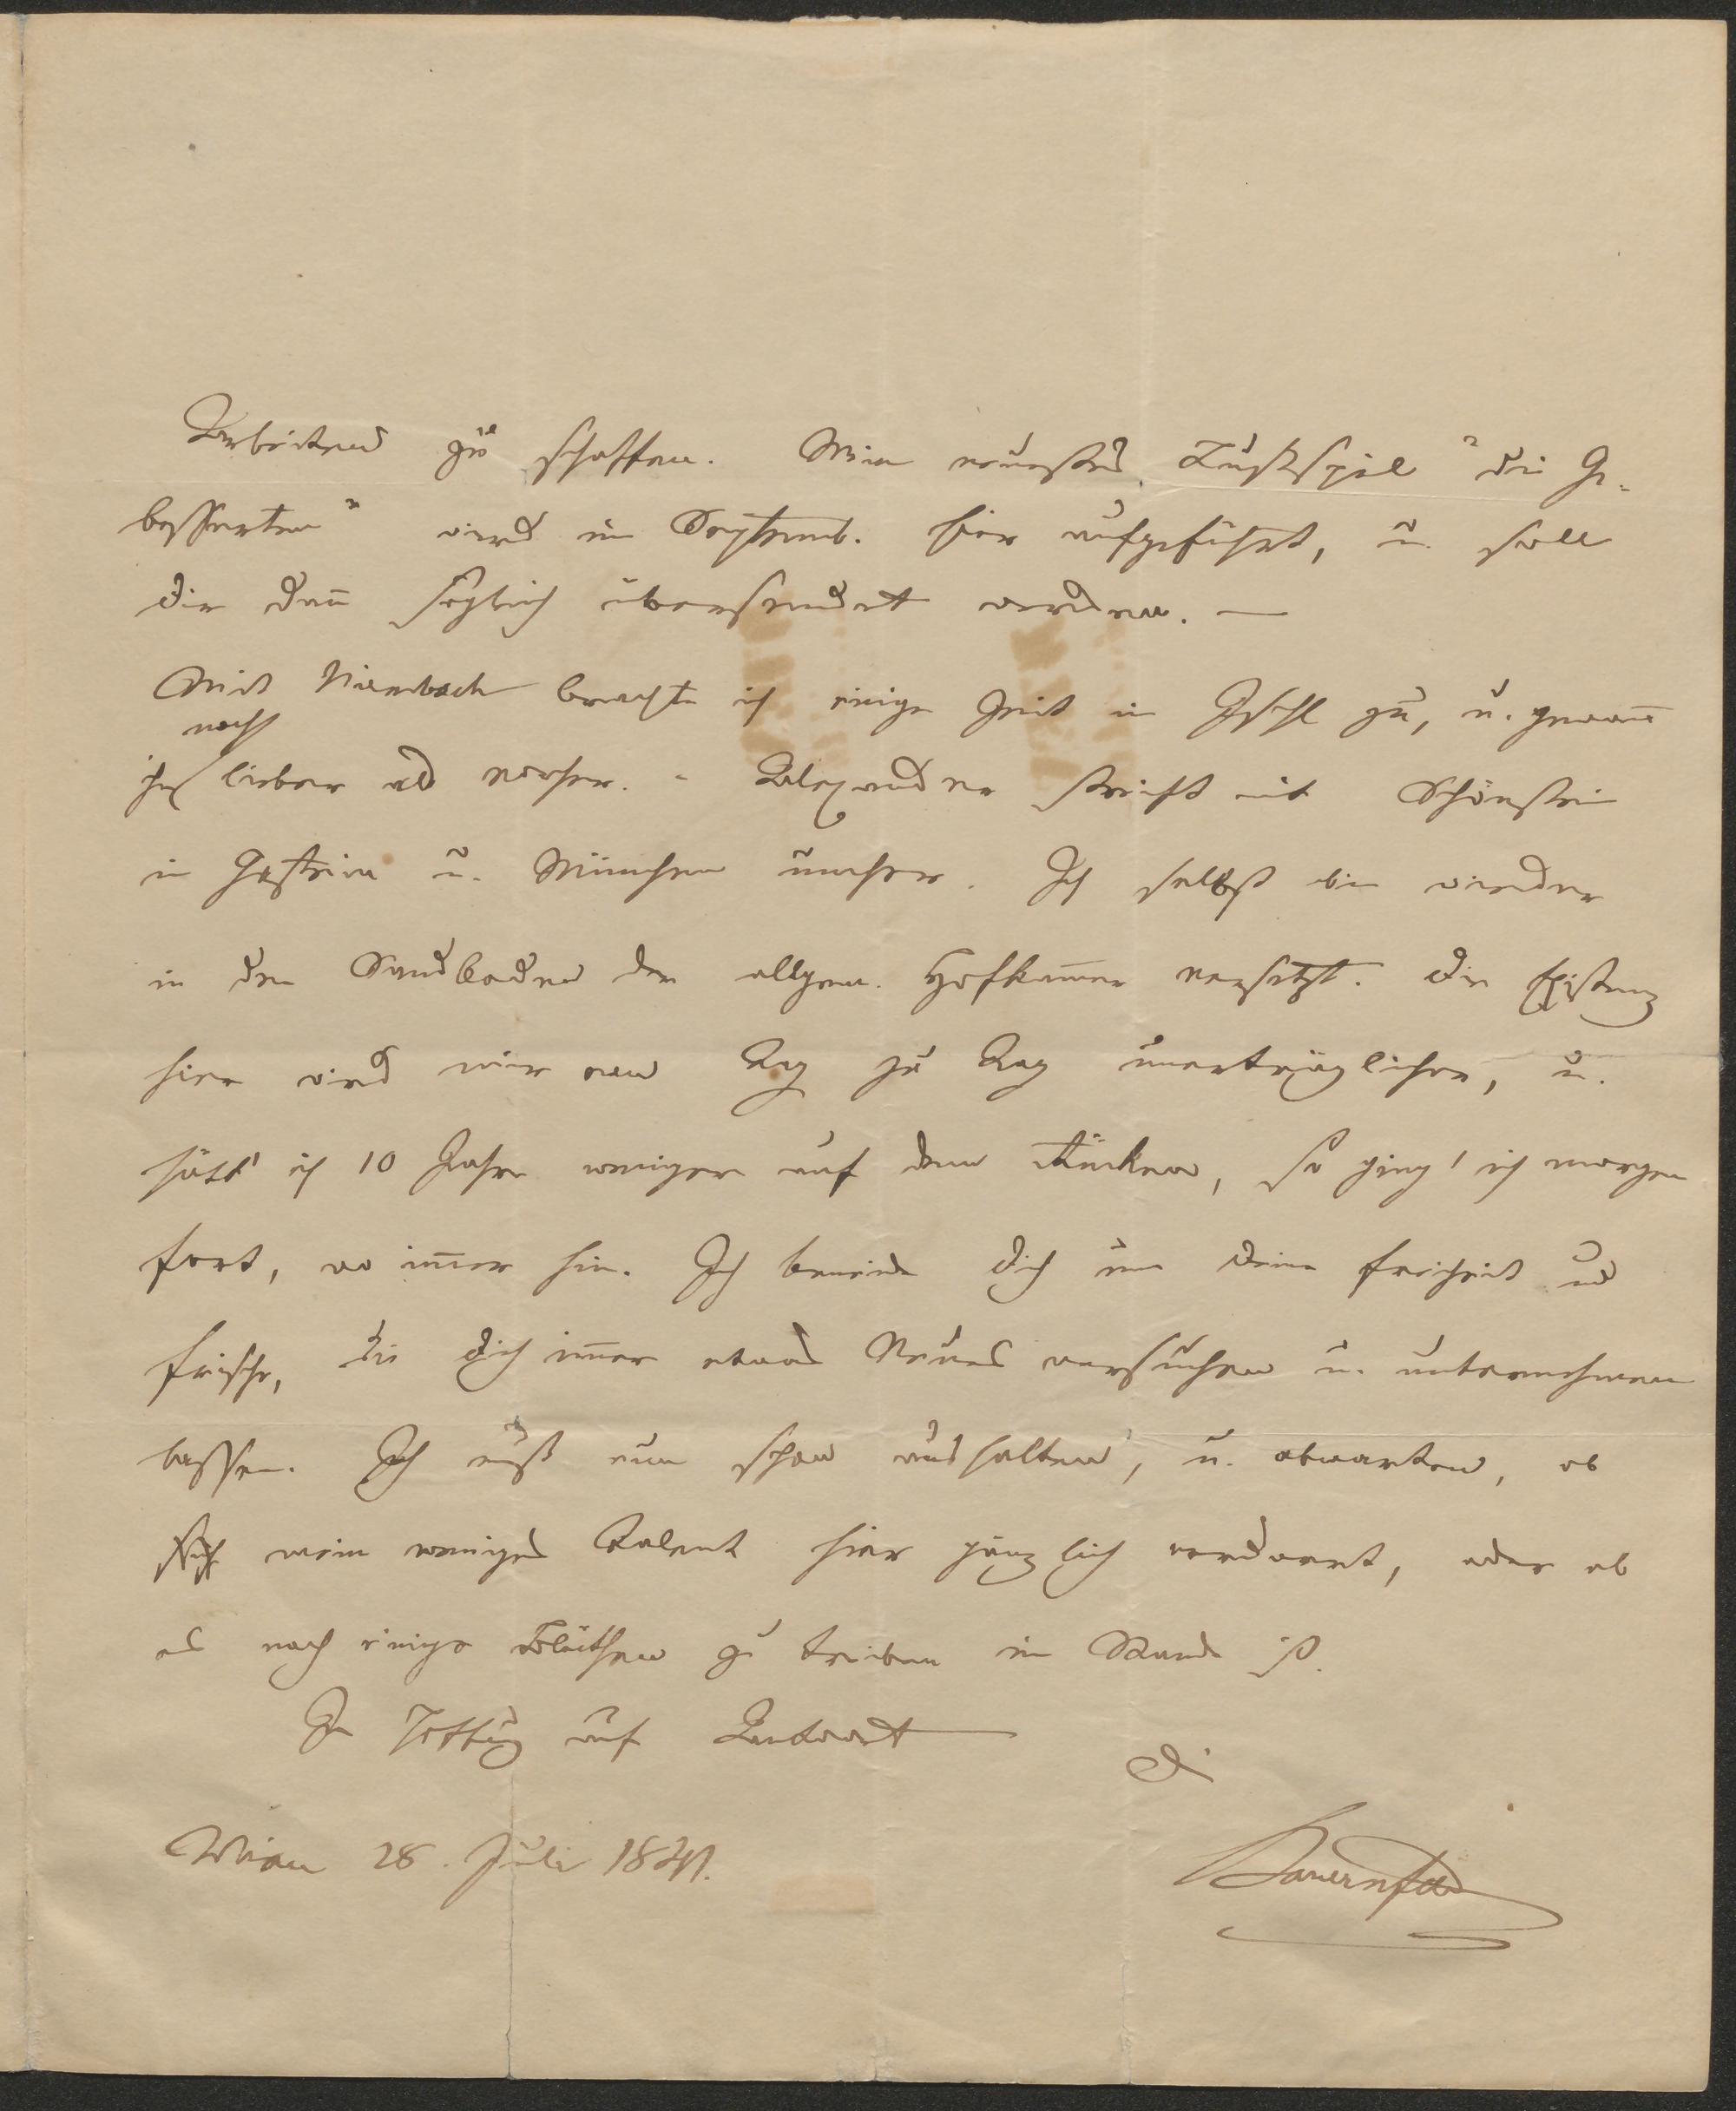 Arbeitens zu schaffen. Mein neuestes Lustspiel "die Ge-
besserten" wird im Septemb. hier aufgeführt, u. soll
dir dann sogleich übersendet werden. —
Mit Niembsch brachte ich einige Zeit in Ischl zu, u. gewann
noch
ihn lieber als vorher. - Alexander streift mit Schönstein
in Gastein u. München umher. Ich selbst bin wieder
in den Sandboden der allgem. Hofkammer versetzt. Die Existenz
hier wird mir von Tag zu Tag unerträglicher, u.
hätt' ich 10 Jahre weniger auf dem Rücken, so ging' ich morgen
fort, wo immer hin. Ich beneide dich um deine Freiheit und
Frische, die dich immer etwas Neues versuchen u. unternehmen
lassen. Ich muß nun schon aushalten, u. abwarten, ob
mein weniges Talent hier gänzlich verdorrt, oder ob
es noch einige Blüthen zu treiben im Stande ist.
In Hoffnung auf Antwort
Dein
Wien 28. Juli 1841.
Bauernfeld